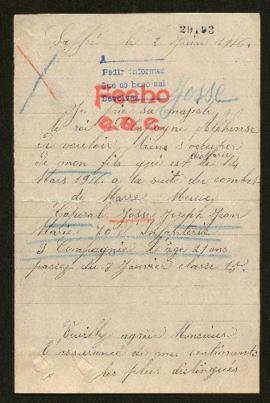 29,93
Saffré le 2 Juin 1916.
A
Pedir informes
Que se haga así
Devolver
Hecho
Josse
Je prie sa majesté
le roi d'Espagne Alphonse
de vouloir bien s'occuper
de mon fils qui est disparu
Mars 1916 a la suite du combat
de Marre Meuse
Caporal Josse Joseph Jean
Marie 70 Infanterie
Compagnie l'âge 21 ans
Janvier classe 15
Veuillez agréer Monsieur
l'assurance de mes sentiments
les plus distingués